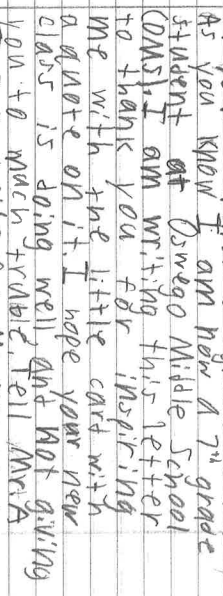 As you know I am now a 7th grade
student at Oswego Middle School
(OMS). I am writing this letter
to thank you for inspiring
me with the little card with
a quote on it. I hope your new
class is doing well and not giving
you to much trouble, tell Mr. A